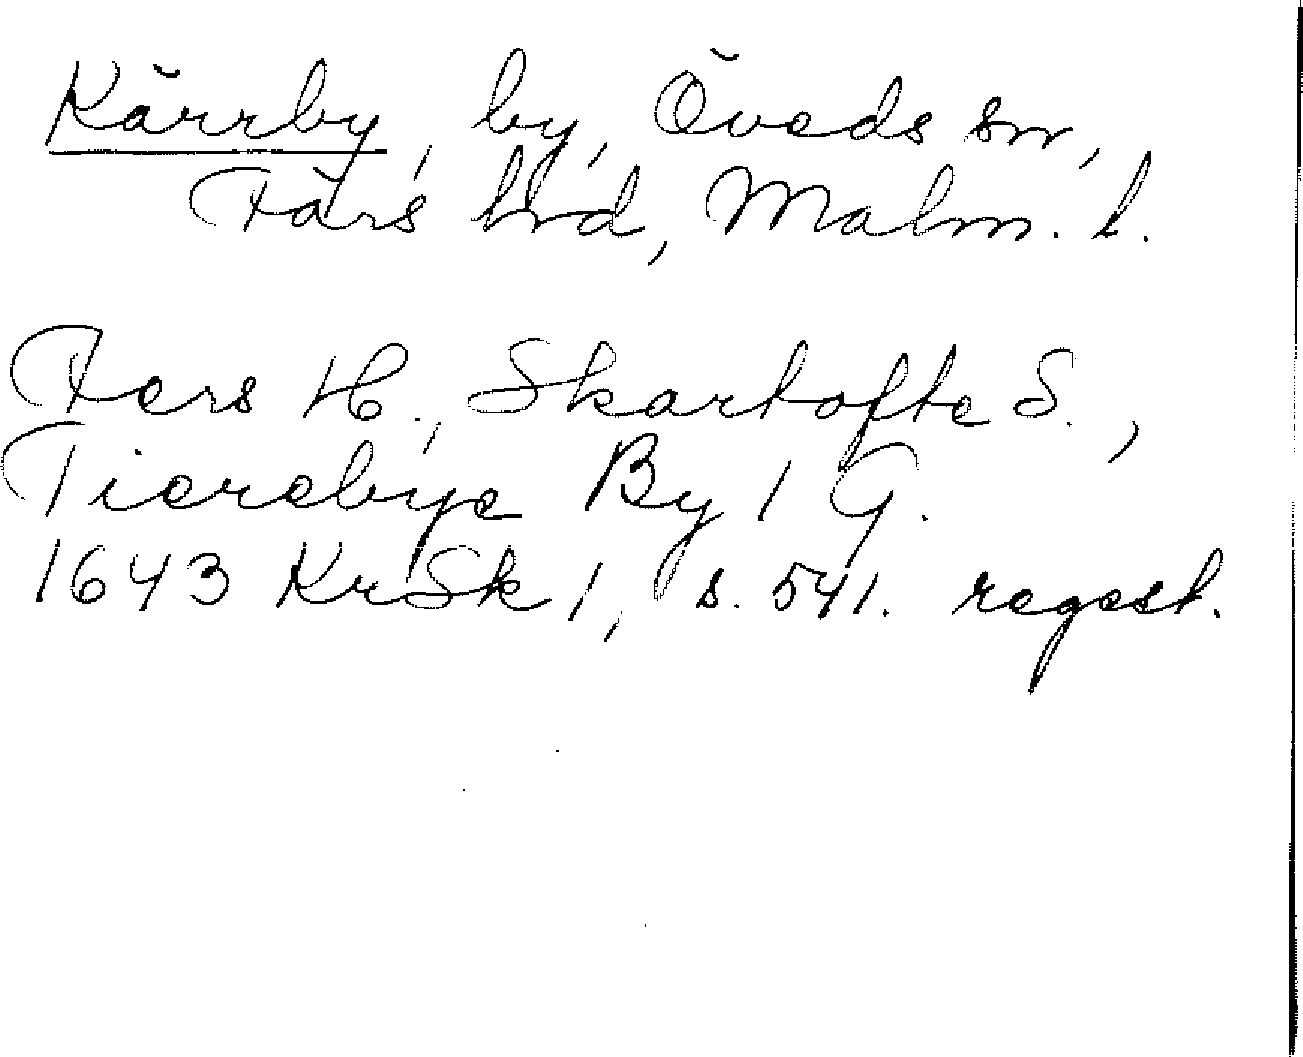 Kärrby, by, Öveds sn,
Färs hrd, Malm. l.
Fers H., Skartofte S.,
Tierebye By 1 G.
1643 KrSk 1, s. 541. regest.